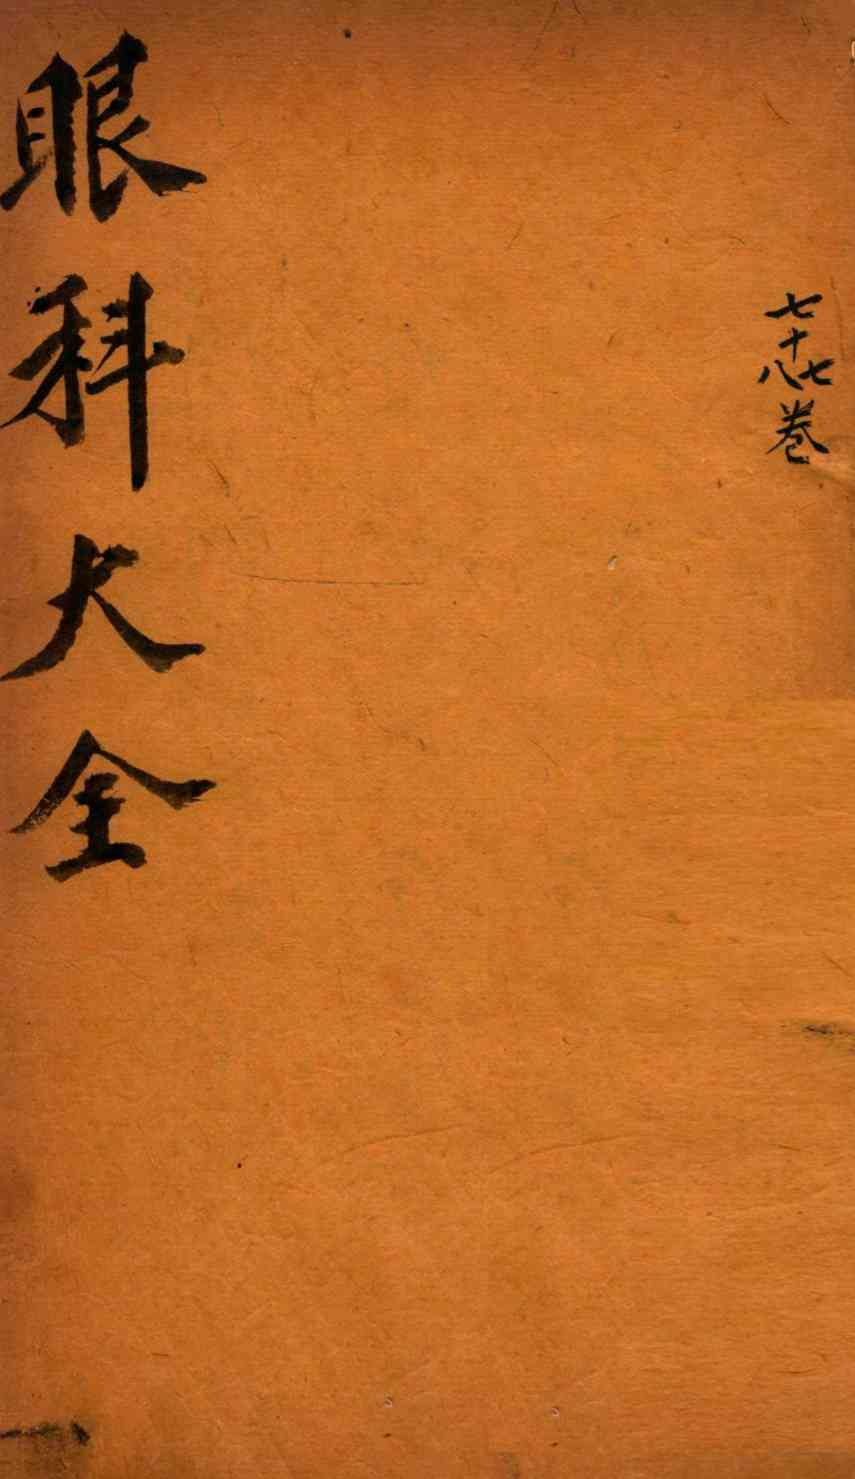 七十七八巻
眼科大全